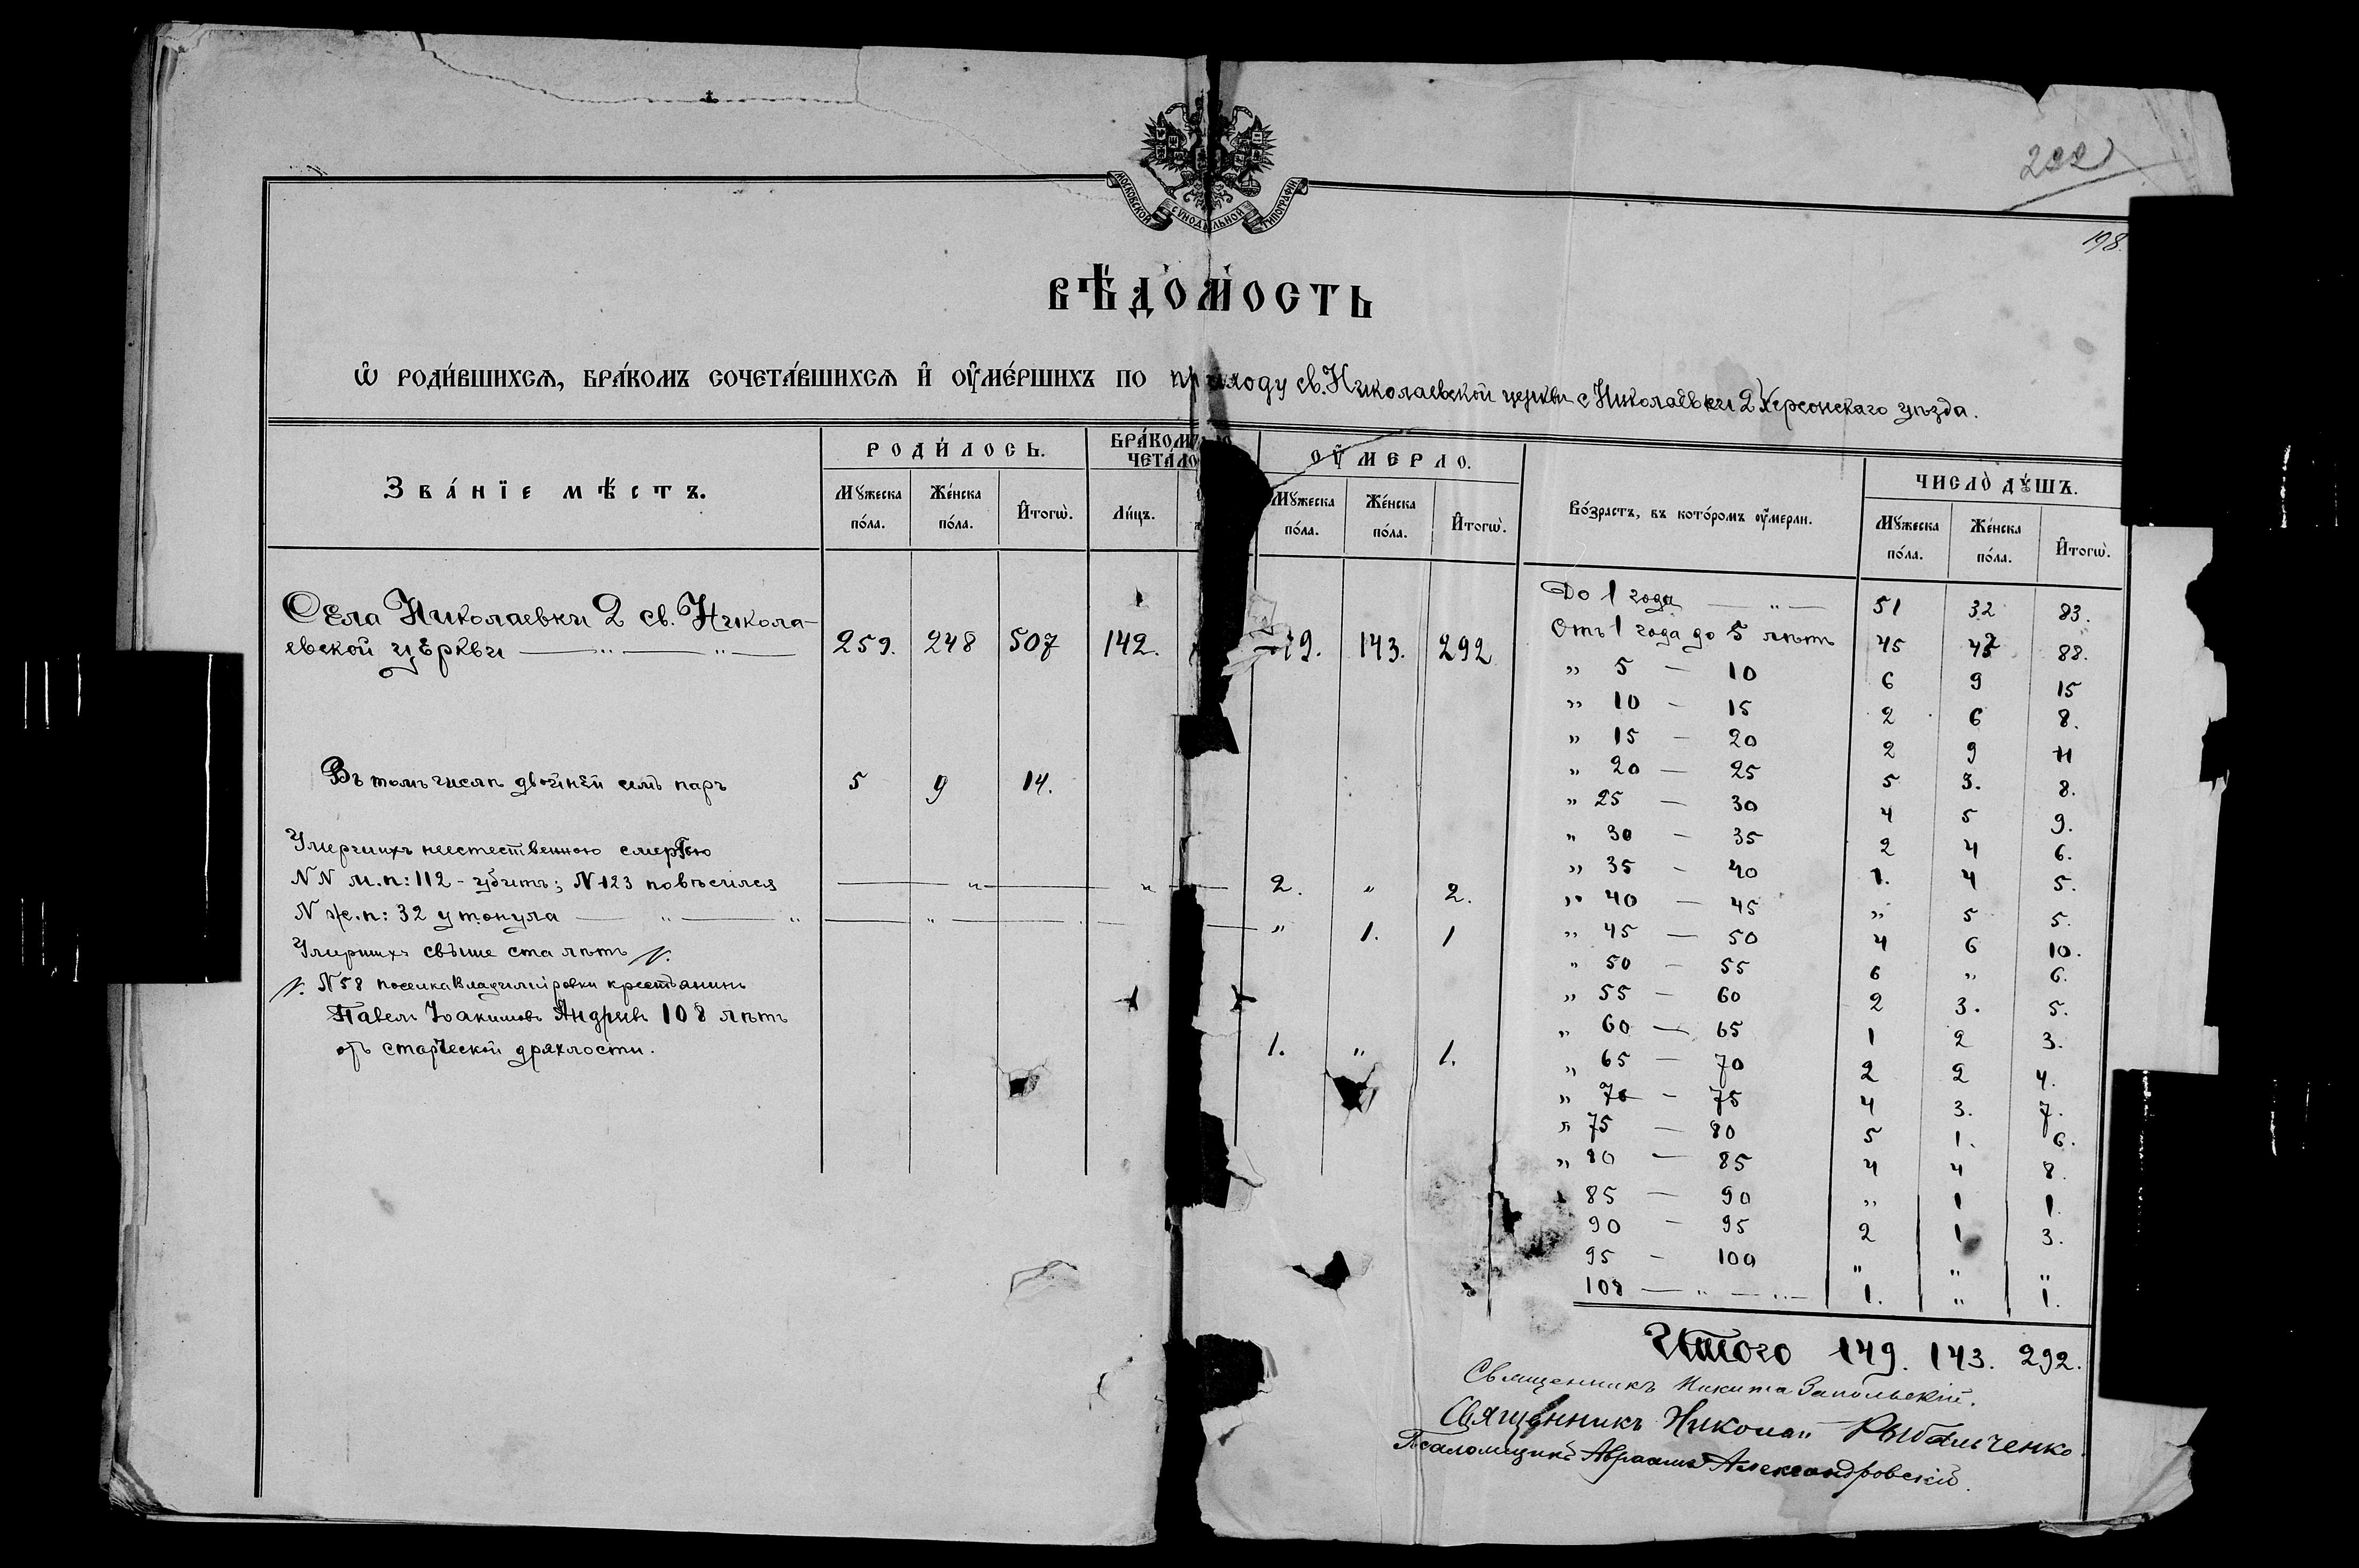 222
198.
МОСКОВСКОЙ СѴНОДАЛЬНОЙ ТИПОГРАФІИ
ВѢ́ДОМОСТЬ
Ѽ РОДИ́ВШИХСѦ, БРА́КОМЪ СОЧЕТА́ВШИХСѦ И҆ ОУ҆МЕ́РШИХЪ ПО приходу св. Николаевской церкви с Николаевки 2 Херсонскаго уѣзда.
Зва́нїе мѣ́стъ.
РОДИ́ЛОСЬ.
Мꙋжеска по́ла.
Же́нска по́ла.
И҆тогѡ̀.
БРА́КОМЪ
ЧЕТА́ЛО
Ли́цъ.
ОУ҆МЕРЛО.
Мꙋжеска по́ла.
Же́нска по́ла.
И҆тогѡ̀.
Во́зрастъ, въ кото́ромъ оу҆мерли.
ЧИСЛО̀ ДꙊ́ШЪ.
Мꙋжеска по́ла.
Же́нска по́ла.
И҆тогѡ̀.
Села Николаевки 2 св. Никола-
евской церкви — „ — „ — 259. 248 507 142. 9. 143. 292
Въ томъ числѣ двойней семь паръ 5 9 14.
Умершихъ неестественною смертью
NN м.п: 112 - убитъ; N 123 повѣсился — „ — „ — 2. „ 2.
N ж.п: 32 утонула — „ — „ — „ — „ 1. 1
Умершихъ свыше ста лѣтъ
N 58 поселка Владимировки крестьянинъ
Павелъ Іоакимовъ Андреевъ 108 лѣтъ
отъ старческой дряхлости. 1. „ 1.
До 1 года — „ — 51 32 83.
Отъ 1 года до 5 лѣтъ 45 43 88.
„ 5 — 10 6 9 15
„ 10 — 15 2 6 8.
„ 15 — 20 2 9 11
„ 20 — 25 5 3. 8.
„ 25 — 30 4 5 9.
„ 30 — 35 2 4 6.
„ 35 — 40 1. 4 5.
„ 40 — 45 „ 5 5.
„ 45 — 50 4 6 10.
„ 50 — 55 6 „ 6.
„ 55 — 60 2 3. 5.
„ 60 — 65 1 2 3.
„ 65 — 70 2 2 4.
„ 70 — 75 4 3. 7.
„ 75 — 80 5 1. 6.
„ 80 — 85 4 4 8.
85 — 90 „ 1 1.
90 — 95 2 1 3.
95 — 100 „ „ „
108 — „ — „ — 1. „ 1.
Итого 149. 143. 292.
Священникъ Никита Запольскій.
Священникъ Николай Рыбальченко
Псаломщикъ Авраамъ Александровскій.